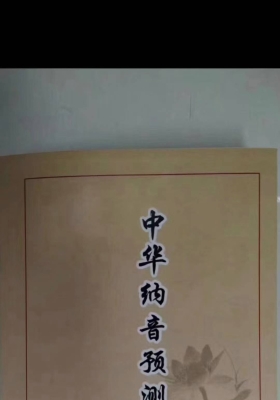 中华纳音预测